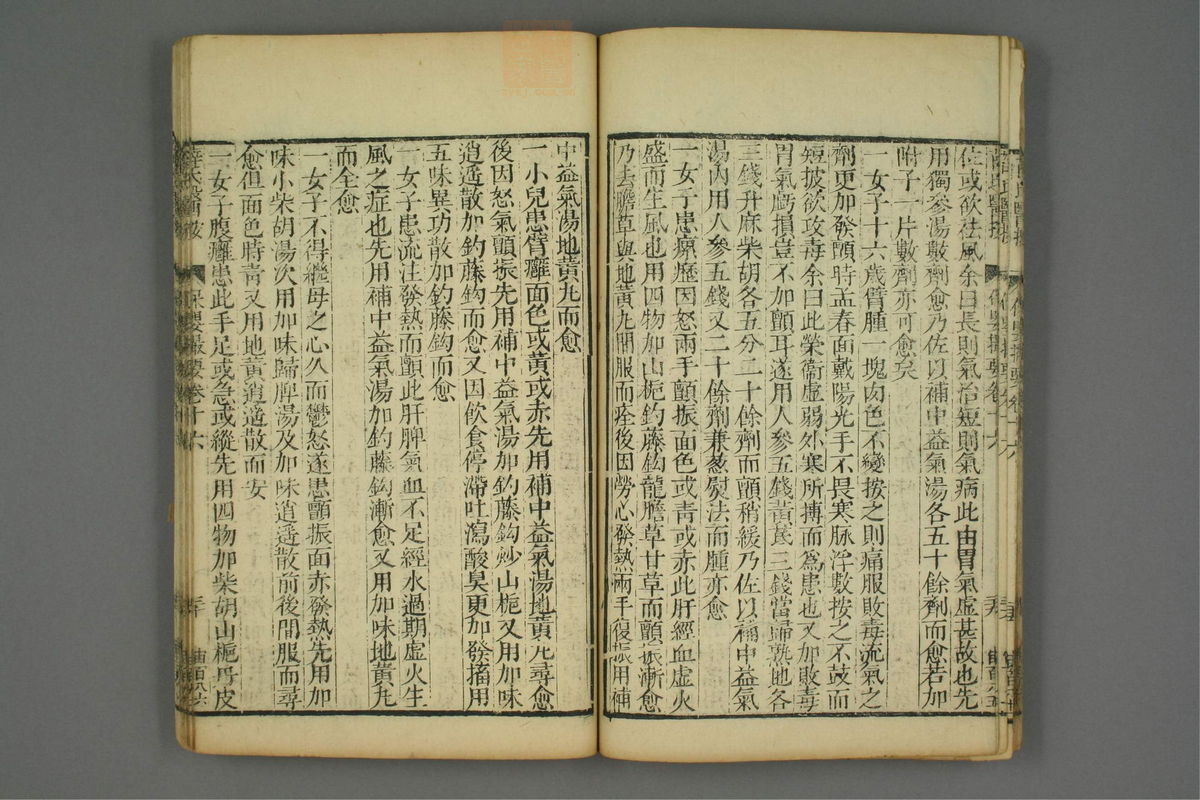 佐或欲祛風余曰長則氣治短則氣病此由胃氣虛甚故也先
用獨參湯數劑愈乃佐以補中益氣湯各五十餘劑而愈若加
附子一片數劑亦可愈矣
一女子十六歲臂腫一塊肉色不變按之則痛服敗毒流氣之
劑更加發顫時孟春面戴陽光手不畏寒脉浮數按之不鼓而
短披欲攻毒余曰此榮衞虛弱外寒所搏而爲患也又加敗毒
胃氣虧損豈不加顫耳遂用人參五錢黃芪三錢當歸熟地各
三錢升麻柴胡各五分二十餘劑而顫稍緩乃佐以補中益氣
湯內用人參五錢又二十餘劑兼葱熨法而腫亦愈
一女子患瘰癧因怒兩手顫振面色或靑或赤此肝經血虛火
盛而生風也用四物加山梔鈎藤鈎龍膽草甘草而顫振漸愈
乃去膽草與地黃丸間服而痊後因勞心發熱兩手復振用補
中益氣湯地黃丸而愈
一小兒患臂癰面色或黃或赤先用補中益氣湯地黃丸尋愈
後因怒氣顫振先用補中益氣湯加鈎藤鈎炒山梔又用加味
逍遙散加鈎藤鈎而愈又因飲食停滯吐瀉酸臭更加發搐用
五味異功散加鈎藤鈎而愈
一女子患流注發熱而顫此肝脾氣血不足經水過期虛火生
風之症也先用補中益氣湯加鈎藤鈎漸愈又用加味地黃丸
而全愈
一女子不得繼母之心久而鬱怒遂患顫振面赤發熱先用加
味小柴胡湯次用加味歸脾湯及加味逍遙散前後間服而尋
愈但面色時靑又用地黃逍遙散而安
一女子腹癰患此手足或急或縱先用四物加柴胡山梔丹皮
保嬰撮要卷十六